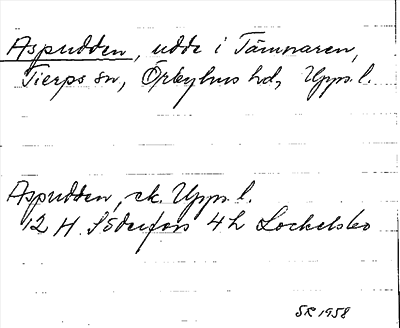 Aspudden, udde i Tämnaren,
Tierps sn, Örbyhus hd, Upps. l.
Aspudden, ek. Upps. l.
12 H. Söderfors 4h Lockelsbo
SR 1958